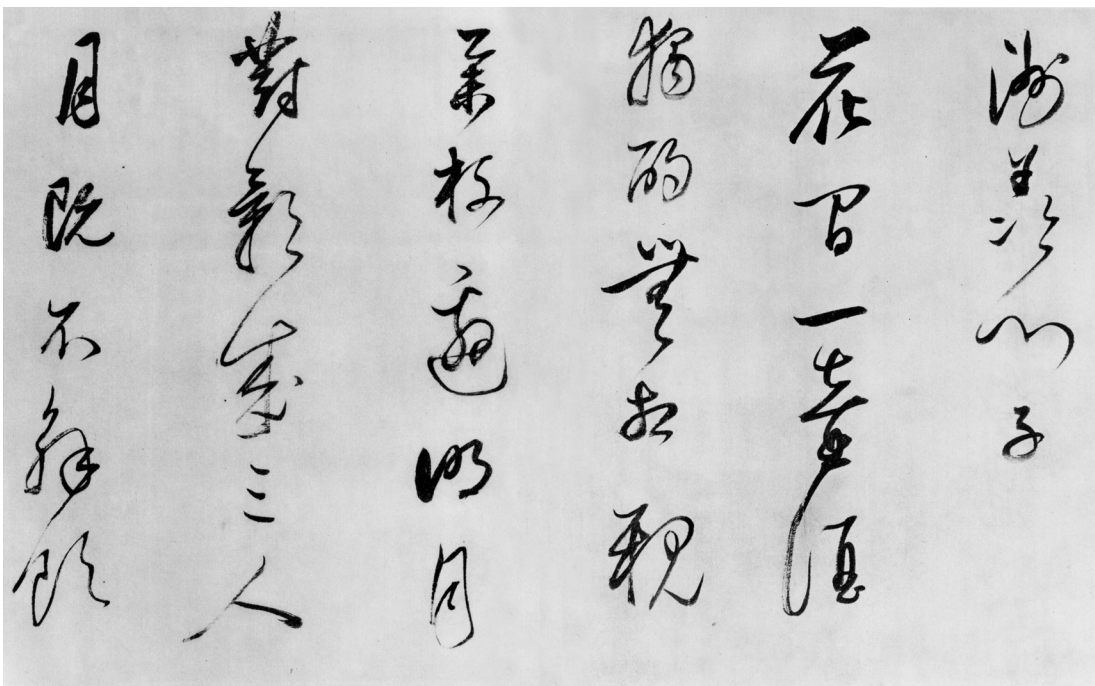 羨門子
花間一壺酒
獨酌無相親
舉杯邀明月
對影成三人
月既不解飲